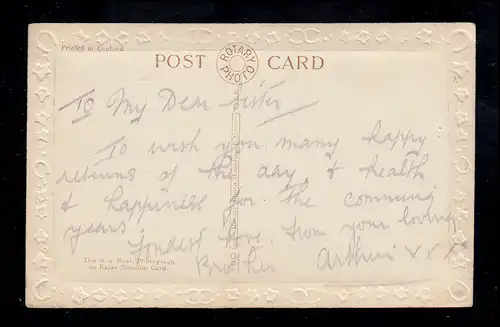 Printed in England
POST CARD
ROTARY PHOTO
To My Dear Sister
To wish you many happy
returns of the day, & health
& happiness for the comming
years, fondest love, from your loving
Brother Arthur x x x
This is a Real Photograph
on Rajar Bromide Card.